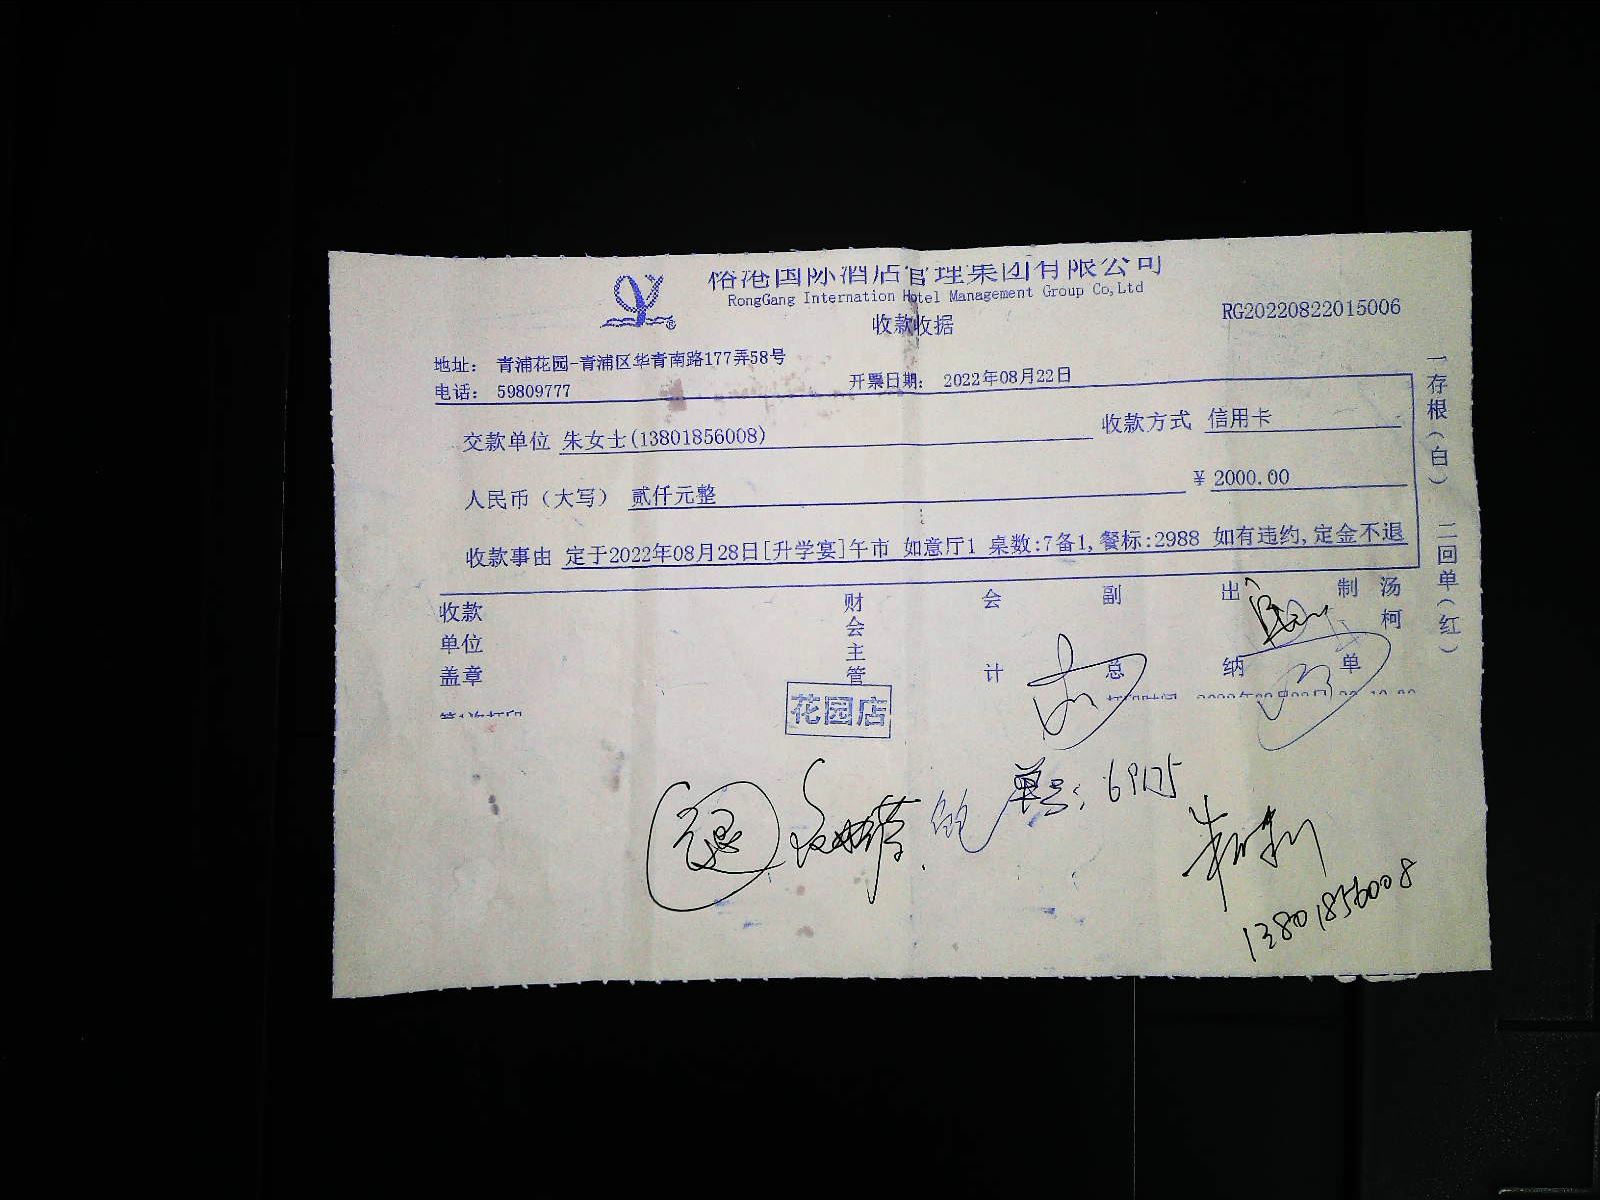 俗港国际酒店管理集团有限公司
RongGang Internation Hotel Management Group Co,Ltd
收款收据
RG20220822015006
地址： 青浦花园-青浦区华青南路177弄58号
电话： 59809777
开票日期： 2022年08月22日
交款单位 朱女士(13801856008)
收款方式 信用卡
人民币（大写） 贰仟元整
¥ 2000.00
收款事由 定于2022年08月28日[升学宴]午市 如意厅1 桌数:7备1,餐标:2988 如有违约,定金不退
一存根(白) 二回单(红)
收款单位盖章
财会主管
会计
副总
出纳
制单
汤柯
第1次打印
花园店
单号: 69175
13801856008